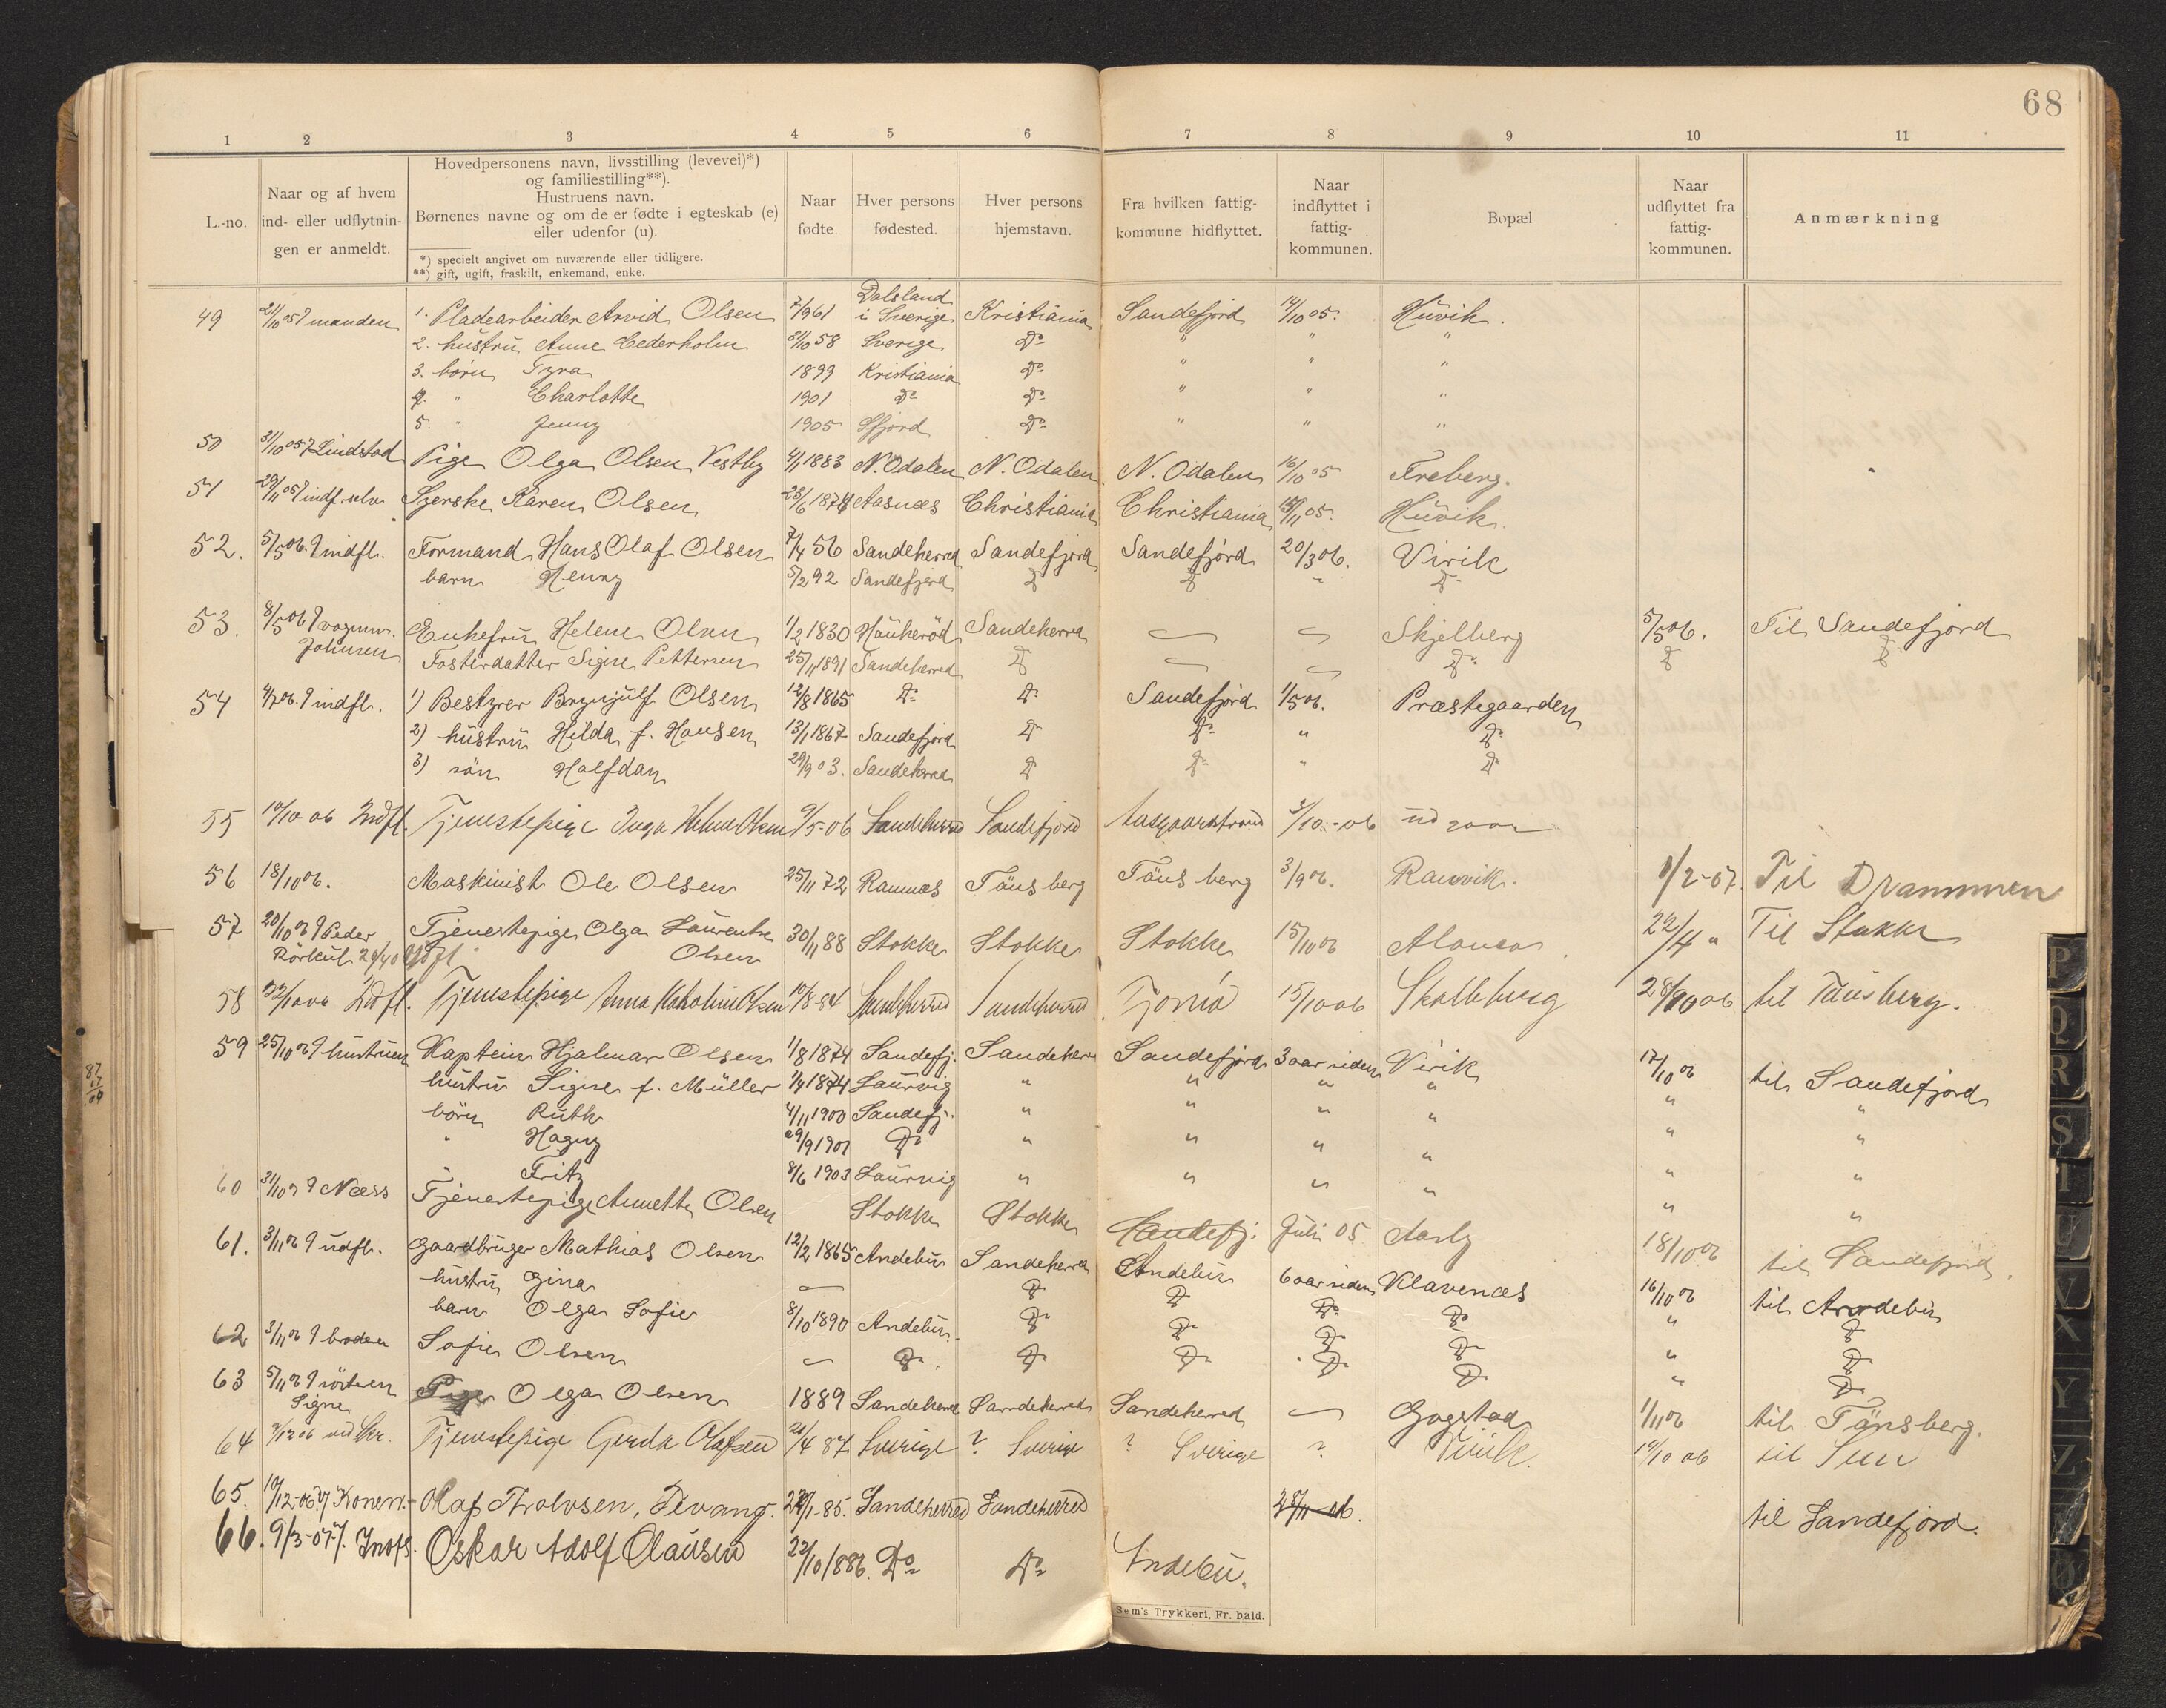 68
1 2 3 4 5 6 7 8 9 10 11
L.-no.
Naar og af hvem
ind- eller udflytnin-
gen er anmeldt.
Hovedpersonens navn, livsstilling (levevei)*)
og familiestilling**).
Hustruens navn.
Børnenes navne og om de er fødte i egteskab (e)
eller udenfor (u).
*) specielt angivet om nuværende eller tidligere.
**) gift, ugift, fraskilt, enkemand, enke.
Naar
fødte.
Hver persons
fødested.
Hver persons
hjemstavn.
Fra hvilken fattig-
kommune hidflyttet.
Naar
indflyttet i
fattig-
kommunen.
Bopæl
Naar
udflyttet fra
fattig-
kommunen.
Anmærkning
49 21/10 05 manden 1. Pladearbeider Arvid Olsen 7/9 61 Dalsland i Sverige Kristiania Sandefjord 14/10 05. Huvik.
2. hustru Anne Cederholm 21/10 58 Sverige Do " " "
3. børn Tyra 1899 Kristiania Do " " "
4. " Charlotte 1901 Do Do " " "
5. " Jenny 1905 Sfjord Do " " "
50 31/10 05 Lindstad Pige Olga Olsen Vestby 4/1 1883 N. Odalen N. Odalen N. Odalen 16/10 05 Freberg.
51 29/11 05 indf. selv Syerske Karen Olsen 23/6 1874 Aasnæs Christiania Christiania 15/11 05. Huvik.
52. 5/5 06. indfl. Formand Hans Olaf Olsen 7/4 56 Sandeherred Sandefjord Sandefjord 20/3 06. Virik
barn Henny 5/2 92 Sandefjord Do Do " Do
53. 8/5 06 vognm. Johnsen Enkefru Helene Olsen 1/2 1830 Haukerød Sandeherred — — Skjelberg 5/5 06. Til Sandefjord
Fosterdatter Signe Pettersen 25/11 1891 Sandeherred Do — — Do Do Do
54 4/7 06. indfl. 1) Bestyrer Brynjulf Olsen 12/8 1865 Do Do Sandefjord 1/5 06. Præstegaarden
2) hustru Hilda f. Hansen 13/1 1867 Sandefjord Do Do " Do
3) søn Halfdan 29/9 03. Sandeherred Do Do " Do
55 10/10 06 Indfl. Tjenestepige Inga Helene Olsen 9/5-06 Sandeherred Sandefjord Aasgaardstrand 3/10-06
56 18/10 06. Maskinist Ole Olsen 25/11 72 Ramnæs Tønsberg Tønsberg 3/9 06. Ranvik. 1/2-07. Til Drammen
57 20/10 06 Peder Tjenestepige Olga Laurentze Olsen 30/11 88 Stokke Stokke Stokke 15/10 06 22/4 " Til Stokke
58 Indfl. Tjenestepige Anna Kaholine Olsen 10/8-84 Sandeherred Sandeherred Tjømø 15/10 06 Skolleberg 28/10 06 til Tønsberg.
59 25/10 06 hustruen Kaptein Hjalmar Olsen 1/8 1874 Sandefj. Sandeherred Sandefjord 3 aar siden Virik 17/10 06 til Sandefjord
hustru Signe f. Müller 1/4 1874 Laurvig " " " " " "
børn Ruth 4/11 1900 Sandefj. " " " " " "
" Hagny 29/9 1901 Do " " " " " "
" Fritz 8/6 1903 Laurvig " " " " " "
60 31/10 06 Næss Tjenestepige Annette Olsen Stokke Stokke Sandefj. Juli 05 Aasly 18/10 06 til Sandefjord.
61. 3/11 06 udfl. Gaardbruger Mathias Olsen 12/2 1865 Andebu Sandeherred Andebu 6 aar siden Klavenæs 16/10 06 til Andebu
hustru Gina — Do Do Do Do " Do
barn Olga Sofie 8/10 1890 Andebu. Do Do Do Do " Do
62 3/11 06 broderen Sofie Olsen — Do. Do Do Do Do " Do
63 5/11 06 søsteren Signe Pige Olga Olsen 1889 Sandeherred Sandeherred Sandeherred — Gogstad 1/11 06 til Tønsberg.
64 7/12 06 ved Skr. Tjenestepige Gerda Olafsen 20/4 87 Sverige ? Sverige ? Sverige ? Virik. 10/10 06 til Sem
65. 10/12-06 Konen.- Olaf Tholvsen, Fevang. 27/1-85. Sandeherred Sandeherred 28/11-06. til Sandefjord.
66. 9/3-07. Indfl. Oskar Adolf Olausen 22/10 1886. Do Do Andebu.
Sem's Trykkeri, Fr.bald.
87
17
04
P
Q
R
S
T
U
V
X
Y
Z
Ø